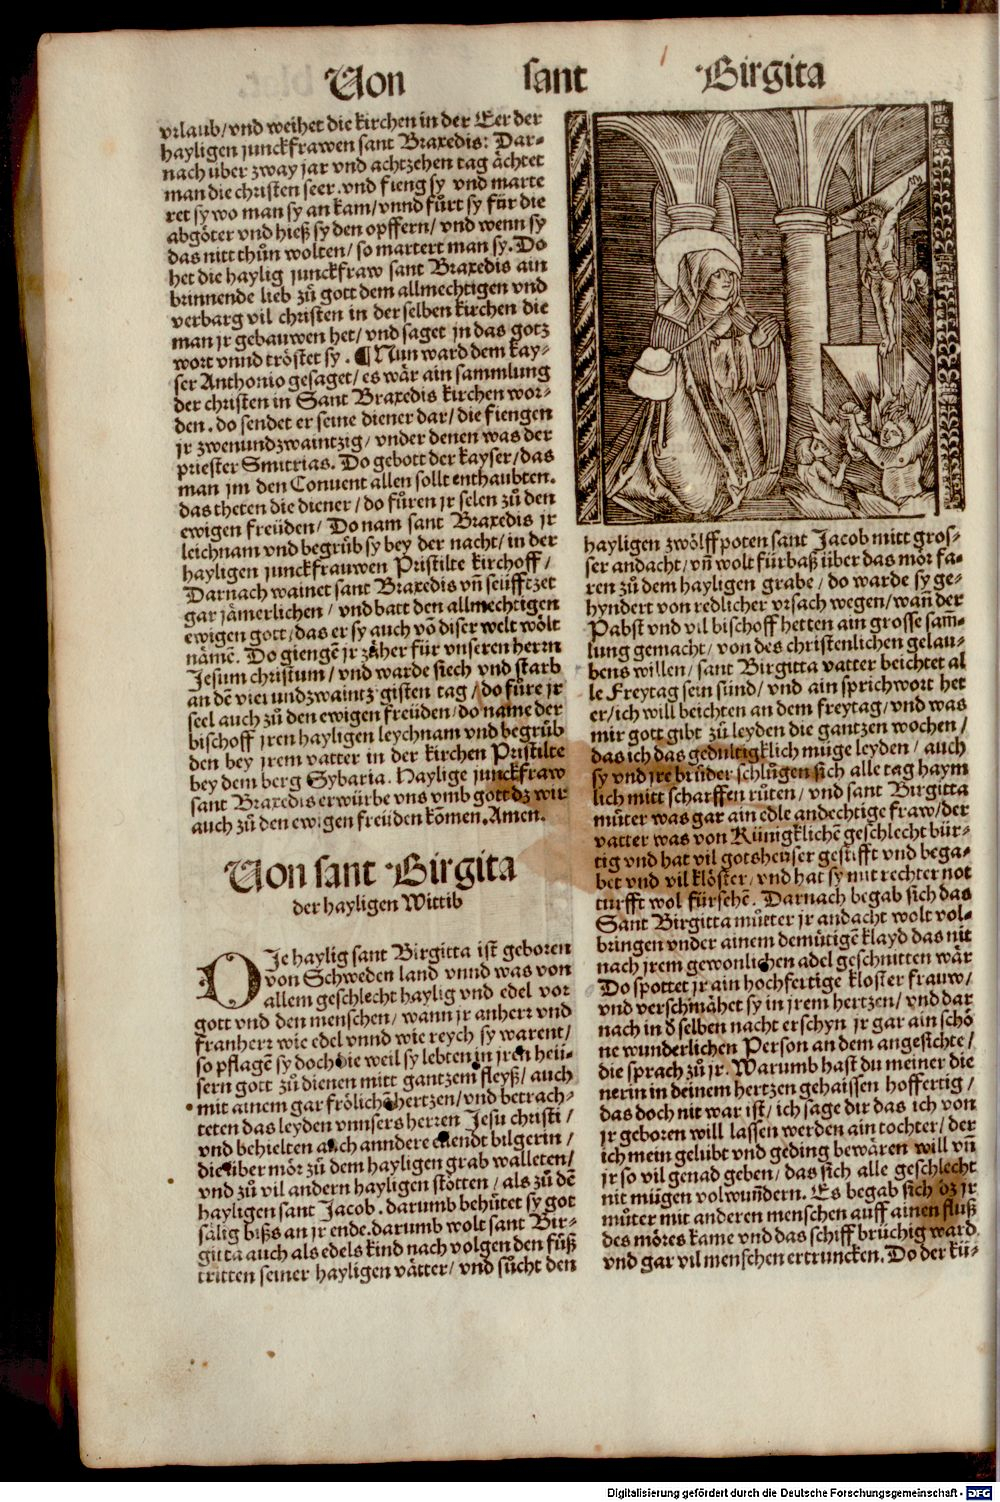 Von sant Birgita
vrlaub/vnd weihet die kirchen in der Eer der
hayligen junckfrawen sant Braxedis: Dar-
nach über zway jar vnd achtzehen tag ächtet
man die christen seer. vnd fieng sy vnd marte
ret sy wo man sy an kam/vnnd fůrt sy für die
abgöter vnd hieß sy den opffern/ vnd wenn sy
das nitt thůn wolten/ so martert man sy. Do
het die haylig junckfraw sant Braxedis ain
brinnende lieb zů gott dem allmechtigen vnd
verbarg vil christen in der selben kirchen die
man jr gebauwen het/ vnd saget jn das gotz
wort vnnd tröstet sy. ¶ Nun ward dem kay-
ser Anthonio gesaget/ es wär ain sammlung
der christen in Sant Braxedis kirchen wor-
den. do sendet er seine diener dar/ die fiengen
jr zwenundzwaintzig/ vnder denen was der
priester Smitrias. Do gebott der kayser/das
man jm den Conuent allen sollt enthaubten.
das theten die diener/ do fůren jr selen zů den
ewigen freüden/ Do nam sant Braxedis jr
leichnam vnd begrůb sy bey der nacht/ in der
hayligen junckfrauwen Pristilte kirchoff/
Darnach wainet sant Braxedis vñ seüfftzet
gar jämerlichen/ vnd batt den allmechtigen
ewigen gott/das er sy auch võ diser welt wölt
nämẽ. Do giengẽ jr zäher für vnseren herrn
Jesum christum/ vnd warde siech vnd starb
an dẽ vier undzwaintzigisten tag/ do fůre jr
seel auch zů den ewigen freüden/do name der
bischoff jren hayligen leychnam vnd begrůb
den bey jrem vatter in der kirchen Pristilte
bey dem berg Sybaria. Haylige junckfraw
sant Braxedis erwürbe vns vmb gott dz wir
auch zů den ewigen freüden kõmen. Amen.
Von sant Birgita
der hayligen Wittib
DJe haylig sant Birgitta ist geboren
von Schweden land vnnd was von
allem geschlecht haylig vnd edel vor
gott vnd den menschen/ wann jr anherr vnd
franherr wie edel vnnd wie reych sy warent/
so pflagẽ sy doch die weil sy lebten in jren heü-
sern gott zů dienen mitt gantzem fleyß/ auch
mit ainem gar frölichẽ hertzen/vnd betrach-
teten das leyden vnnsers herren Jesu christi/
vnd behielten auch anndere ellendt bilgerin/
die über mör zů dem hayligen grab walleten/
vnd zů vil andern hayligen stötten/ als zů dẽ
hayligen sant Jacob. darumb behůtet sy got
sälig bißs an jr ende. darumb wolt sant Bir-
gitta auch als edels kind nach volgen den fůß
tritten seiner hayligen vätter/ vnd sůcht den
hayligen zwölffpoten sant Jacob mitt gros-
ser andacht/ vñ wolt fürbaß über das mör fa-
ren zů dem hayligen grabe/ do warde sy ge-
hyndert von redlicher vrsach wegen/wañ der
Pabst vnd vil bischoff hetten ain grosse sam̃-
lung gemacht/ von des christenlichen gelau-
bens willen/ sant Birgitta vatter beichtet al
le Freytag sein sünd/ vnd ain sprichwort het
er/ich will beichten an dem freytag/vnd was
mir gott gibt zů leyden die gantzen wochen/
das ich das gedultigklich müge leyden/ auch
sy vnd jre brůder schlůgen sich alle tag haym
lich mitt scharffen růten/ vnd sant Birgitta
můter was gar ain edle andechtige fraw/der
vatter was von Künigklichẽ geschlecht bür-
tig vnd hat vil gotsheuser gestifft vnd bega-
bet vnd vil klöster/ vnd hat sy mit rechter not
turfft wol fürsehẽ. Darnach begab sich das
Sant Birgitta můtter jr andacht wolt vol-
bringen vnder ainem demütigẽ klayd das nit
nach jrem gewonlichen adel geschnitten wär
Do spottet jr ain hochfertige kloster frauw/
vnd verschmähet sy in jrem hertzen/ vnd dar
nach in d̕ selben nacht erschyn jr gar ain schö
ne wunderlichen Person an dem angesichte/
die sprach zů jr. Warumb hast du meiner die
nerin in deinem hertzen gehaissen hoffertig/
das doch nit war ist/ ich sage dir das ich von
jr geboren will lassen werden ain tochter/ der
ich mein gelübt vnd geding bewären will vñ
jr so vil genad geben/ das sich alle geschlecht
nit mügen volwundern. Es begab sich dz jr
můter mit anderen menschen auff ainen fluß
des möres kame vnd das schiff brüchig ward
vnd gar vil menschen ertruncken. Do der kü-
Digitalisierung gefördert durch die Deutsche Forschungsgemeinschaft - DFG